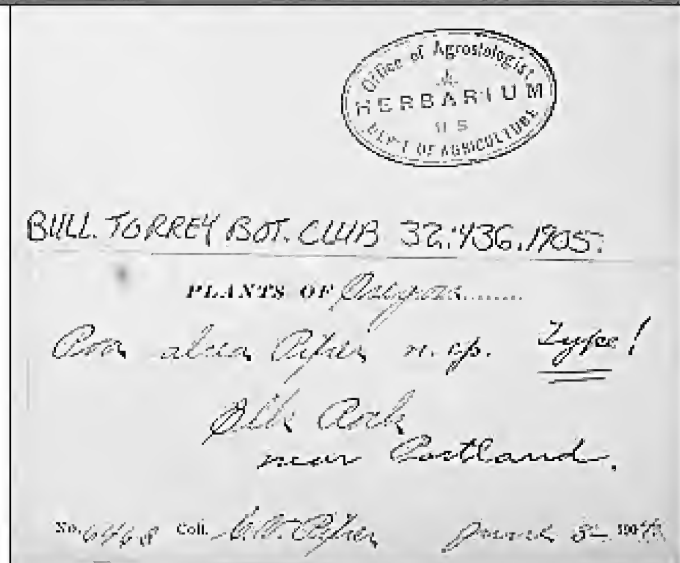 Office of Agrostologist
HERBARIUM
U S
DEP'T OF AGRICULTURE
BULL. TORREY BOT. CLUB 32:436.1905.
PLANTS OF Oregon
Poa alcea Piper n. sp. Type!
Elk Rock
near Portland.
No. 6468 Coll. C.V. Piper June 190